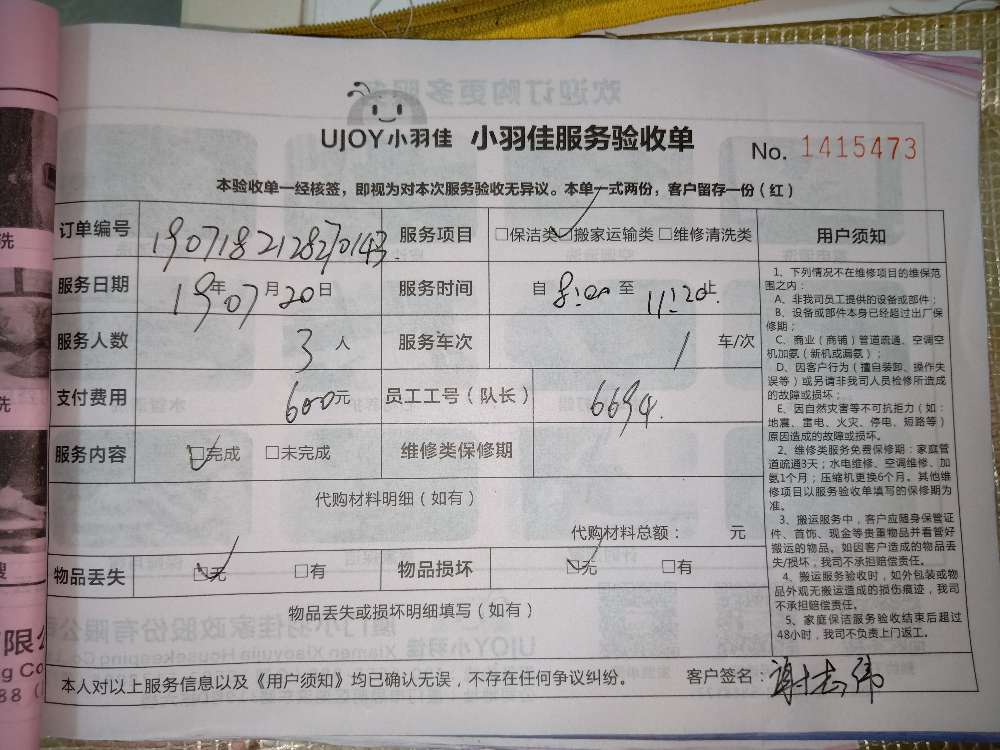 UJOY小羽佳 小羽佳服务验收单 No. 1415473
本验收单一经核签，即视为对本次服务验收无异议。本单一式两份，客户留存一份（红）
订单编号 1907182128270143 服务项目 □保洁类 ☑搬家运输类 □维修清洗类
服务日期 19年07月20日 服务时间 自 8:00 至 11:20止
服务人数 3 人 服务车次 1 车/次
支付费用 600元 员工工号（队长） 6694.
服务内容 ☑完成 □未完成 维修类保修期
代购材料明细（如有）
代购材料总额： 元
物品丢失 ☑无 □有 物品损坏 ☑无 □有
物品丢失或损坏明细填写（如有）
本人对以上服务信息以及《用户须知》均已确认无误，不存在任何争议纠纷。 客户签名：谢志伟
用户须知
1、下列情况不在维修项目的维保范
围之内：
A、非我司员工提供的设备或部件；
B、设备或部件本身已经超过出厂保
修期；
C、商业（商铺）管道疏通、空调空
机加氨（新机或漏氨）；
D、因客户行为（擅自装卸、操作失
误等）或另请非我司人员检修所造成
的故障或损坏；
E、因自然灾害等不可抗拒力（如：
地震、雷电、火灾、停电、短路等）
原因造成的故障或损坏。
2、维修类服务免费保修期：家庭管
道疏通3天；水电维修、空调维修、加
氨1个月；压缩机更换6个月。其他维
修项目以服务验收单填写的保修期为
准。
3、搬运服务中，客户应随身保管证
件、首饰、现金等贵重物品并看管好
搬运的物品。如因客户造成的物品丢
失/损坏，我司不承担赔偿责任。
4、搬运服务验收时，如外包装或物
品外观无搬运造成的损伤痕迹，我司
不承担赔偿责任。
5、家庭保洁服务验收结束后超过
48小时，我司不负责上门返工。